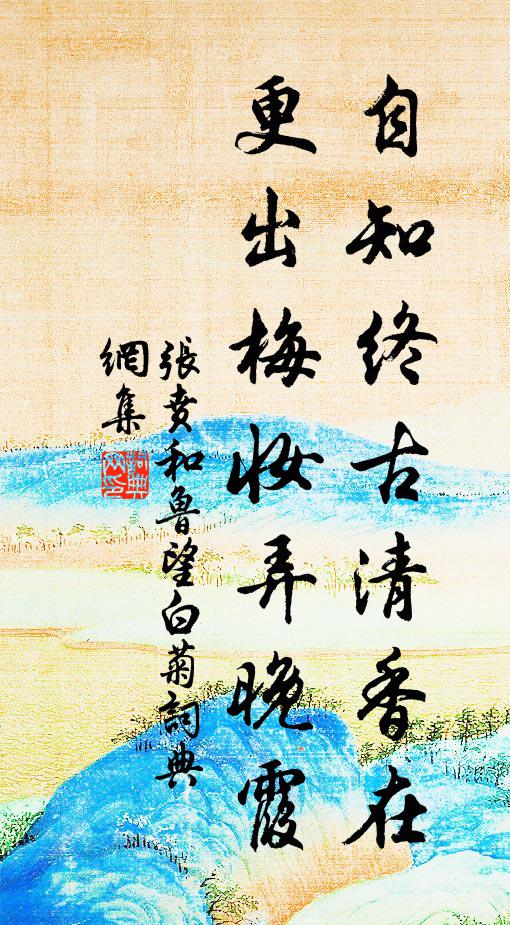 自知終古清香在
更出梅妝弄晚霞
張賁和魯望白菊詞典
網集